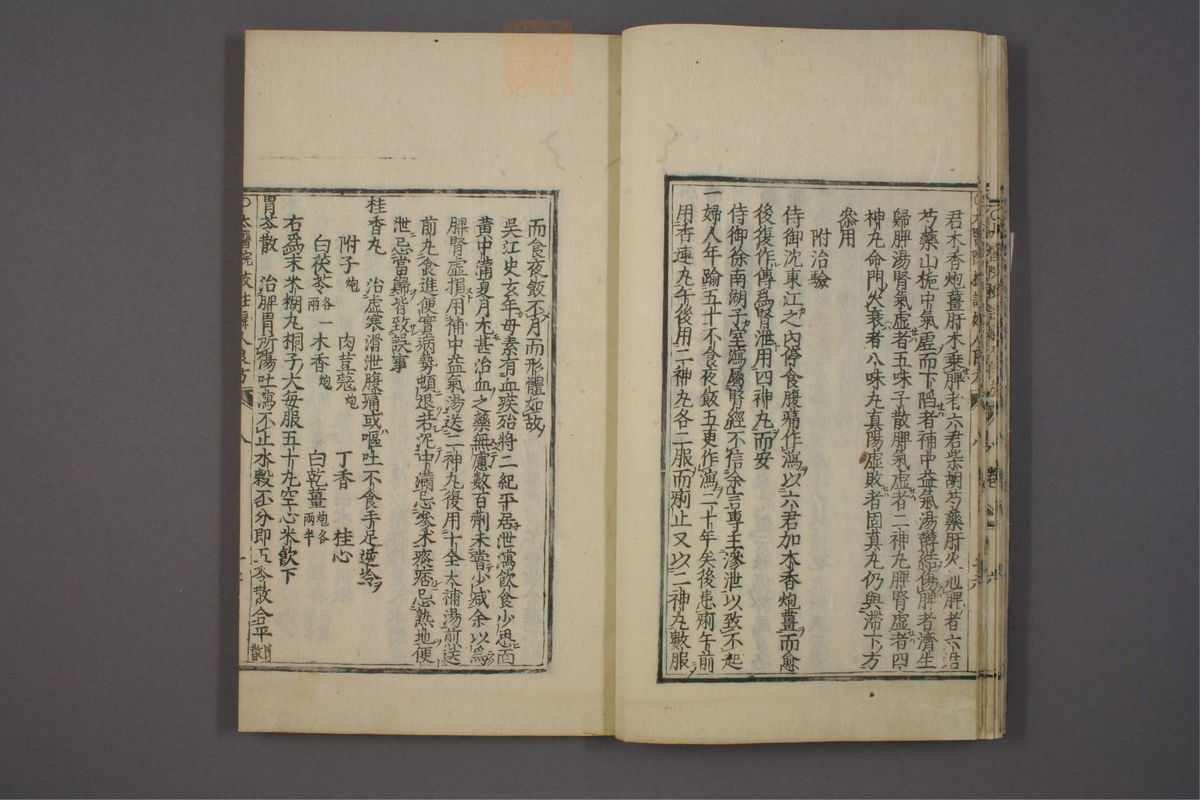 君木香炮薑肝木乗脾者六君柴胡芍藥肝火乘脾者六君
芍藥山梔中氣虛而下陷者補中益氣湯鬱結傷脾者濟生
歸脾湯腎氣虛者五味子散脾氣虛者二神丸脾腎虛者四
神丸命門火衰者八味丸真陽虛敗者固真丸仍與滯下方
叅用
附治驗
侍御沈東江之內停食腹痛作瀉以六君加木香炮薑而愈
後復作傳爲腎泄用四神丸而安
侍御徐南湖子室瀉屬腎經不信余言專主滲泄以致不起
一婦人年踰五十不食夜飯五更作瀉二十年矣後患痢午前
用香連丸午後用二神丸各二服而痢止又以二神丸數服
而食夜飯不月而形體如故
吳江史玄年母素有血疾殆將二紀平居泄瀉飲食少思面
黃中滿夏月尤甚治血之藥無慮數百劑未嘗少减余以爲
脾腎虛損用補中益氣湯送二神丸復用十全大補湯前送
前丸食進便實病勢頓退若泥中滿忌參朮痰痞忌熟地便
泄忌當歸皆致誤事
桂香丸 治虛寒滑泄腹痛或嘔吐不食手足逆冷
附子炮 肉荳蔻炮 丁香 桂心
白茯苓各一兩 木香炮 白乾薑炮各半兩
右爲末米糊丸桐子大每服五十丸空心米飲下
胃苓散 治脾胃所傷吐瀉不止水穀不分即五苓散合平胃散